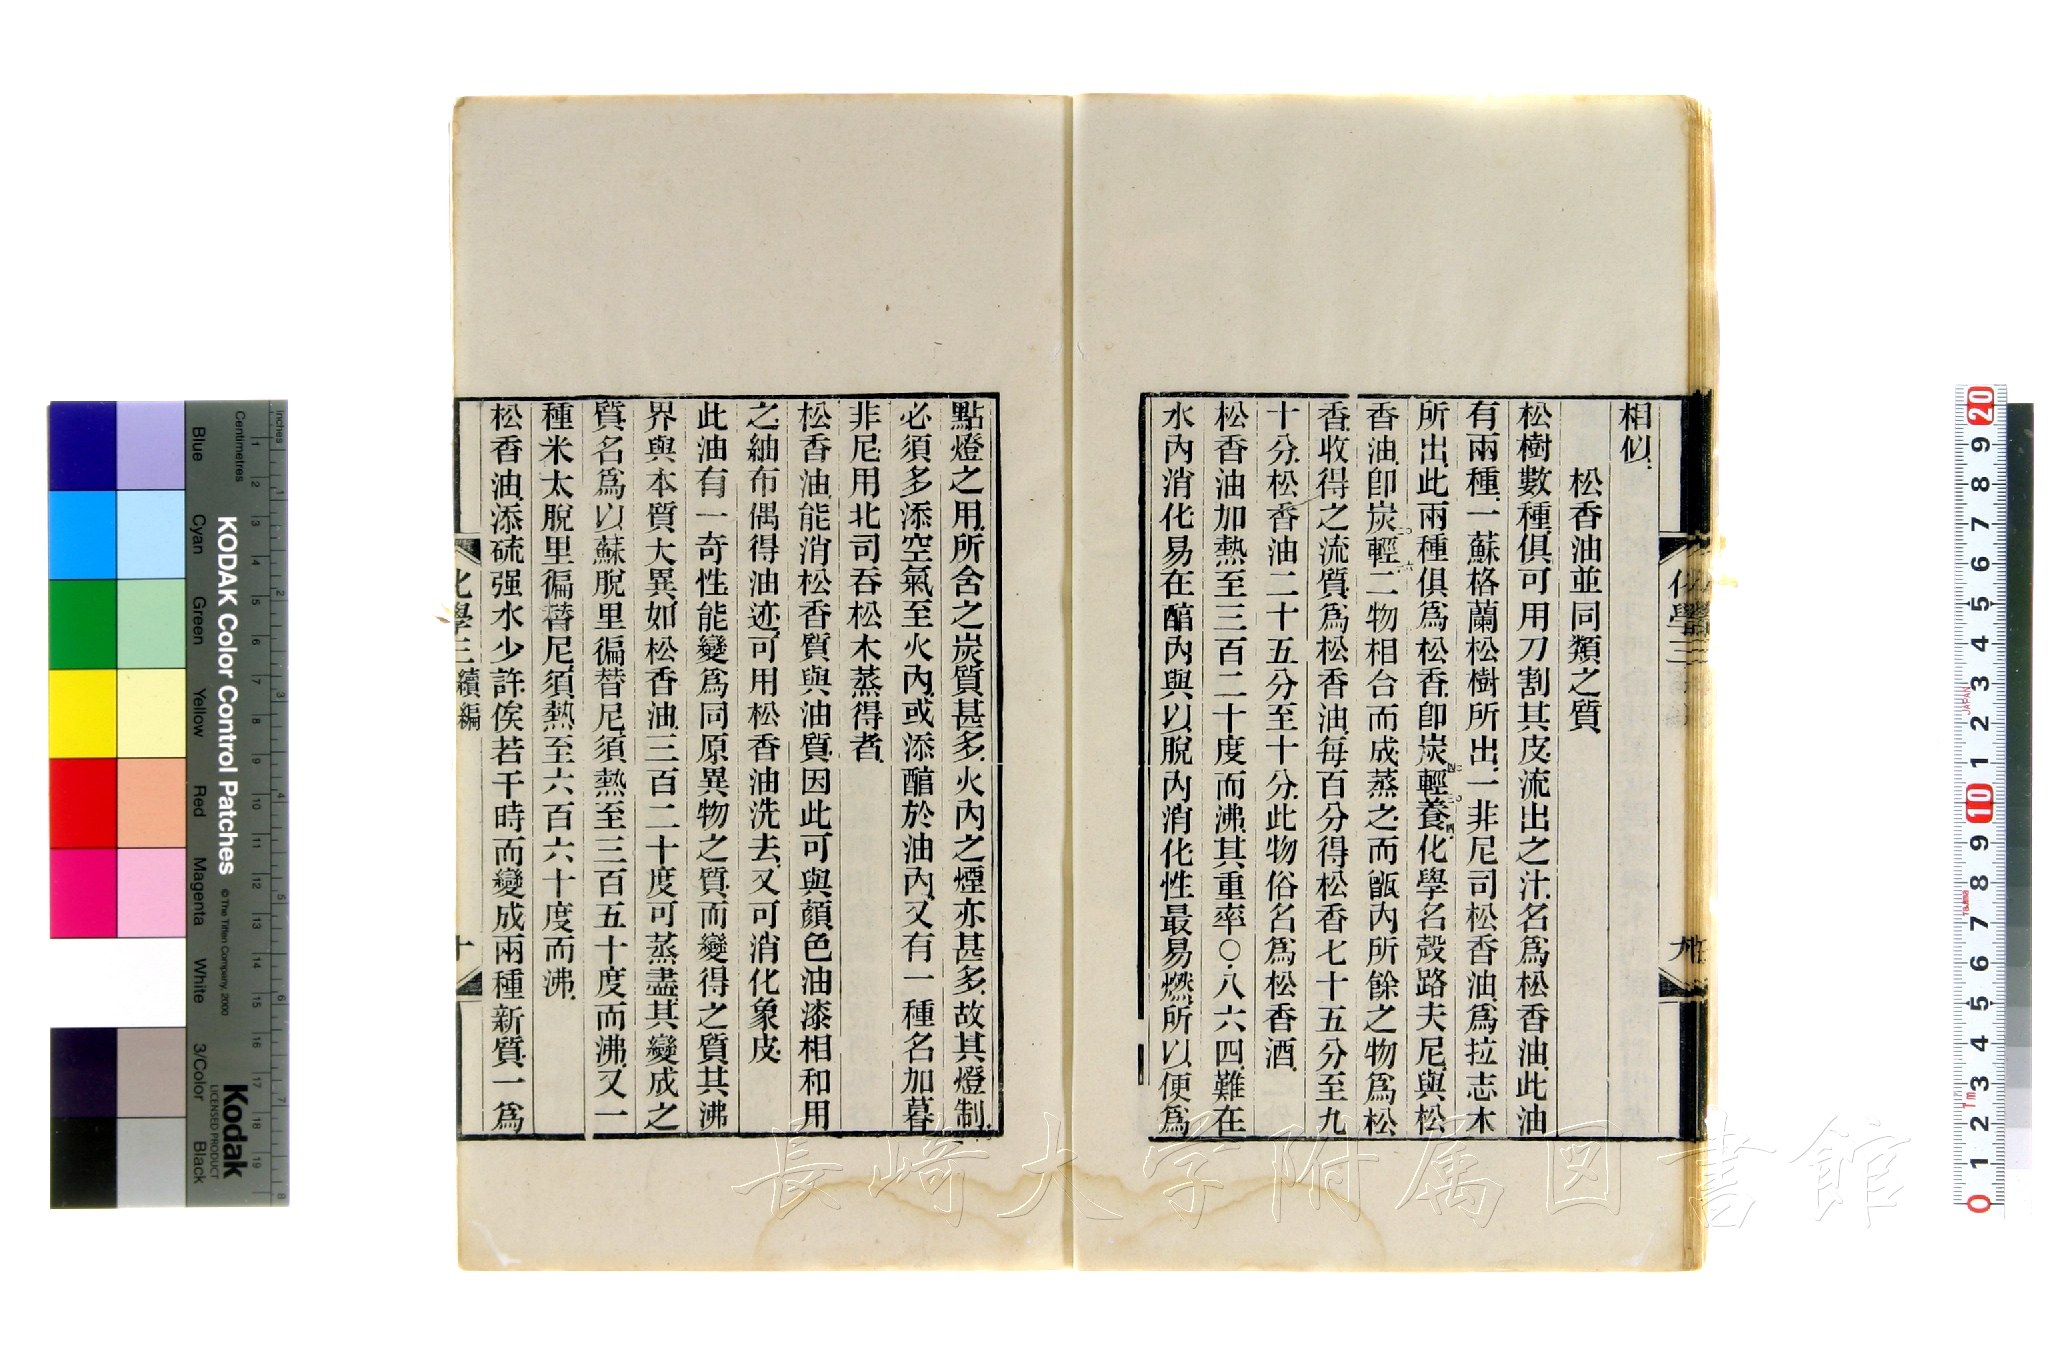 相似
松香油並同類之質
松樹數種俱可用刀割其皮流出之汁名爲松香油此油
有兩種一蘇格蘭松樹所出一非尼司松香油爲拉志木
所出此兩種俱爲松香卽炭四〇輕三〇養四化學名殼路夫尼與松
香油卽炭二〇輕一六二物相合而成蒸之而甑內所餘之物爲松
香收得之流質爲松香油每百分得松香七十五分至九
十分松香油二十五分至十分此物俗名爲松香酒
松香油加熱至三百二十度而沸其重率〇八六四難在
水內消化易在醕內與以脫內消化性最易燃所以便爲
化學三
九
點燈之用所含之炭質甚多火內之煙亦甚多故其燈制
必須多添空氣至火內或添醕於油內又有一種名加暮
非尼用北司吞松木蒸得者
松香油能消松香質與油質因此可與顏色油漆相和用
之紬布偶得油迹可用松香油洗去又可消化象皮
此油有一奇性能變爲同原異物之質而變得之質其沸
界與本質大異如松香油三百二十度可蒸盡其變成之
質名爲以蘇脫里徧替尼須熱至三百五十度而沸又一
種米太脫里徧替尼須熱至六百六十度而沸
松香油添硫强水少許俟若干時而變成兩種新質一爲
化學三續編
十
長崎大学附属図書館
KODAK Color Control Patches
© The Tiffen Company, 2000
Kodak
LICENSED PRODUCT
Inches
Centimetres
Blue
Cyan
Green
Yellow
Red
Magenta
White
3/Color
Black
JAPAN
Tajima